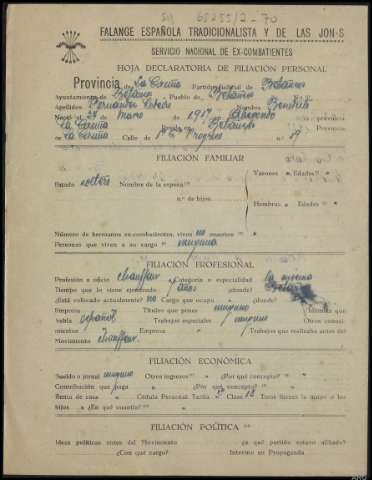 59 65255/2-70
FALANGE ESPAÑOLA TRADICIONALISTA Y DE LAS JON-S
SERVICIO NACIONAL DE EX-COMBATIENTES
HOJA DECLARATORIA DE FILIACIÓN PERSONAL
Provincia de La Coruña Partido Judicial de Betanzos
Ayuntamiento de Betanzos Pueblo de Betanzos
Apellidos Fernandez Nombre Benito
Nació el 24 de Marzo de 1917 en provincia
de La Coruña Provincia
de La Coruña Calle de Progreso n.º 19
FILIACIÓN FAMILIAR
Varones Edades
Estado soltero Nombre de la esposa
n.º de hijos
Hembras Edades
Número de hermanos ex-combatientes, vivos no muertos
Personas que viven a su cargo ninguna
FILIACIÓN PROFESIONAL
Profesión u oficio chauffeur Categoría o especialidad la misma
Tiempo que lo viene ejerciendo años ¿dónde? Betanzos
¿Está colocado actualmente? no Cargo que ocupa ¿dónde?
Empresa Títulos que posee ninguno Idiomas que
habla español Trabajos especiales ninguno Otros conoci-
mientos Empresa Trabajos que realizaba antes del
Movimiento chauffeur
FILIACIÓN ECONÓMICA
Sueldo o jornal ninguno Otros ingresos ¿Por qué concepto?
Contribución que paga ¿Por qué concepto?
Renta de casa Cédula Personal Tarifa Clase 13 Tuvo tierras
hijos ¿En qué cuantía?
FILIACIÓN POLÍTICA
Ideas políticas antes del Movimiento ¿a qué partido estuvo afiliado?
¿Con qué cargo? Intervino en Propaganda